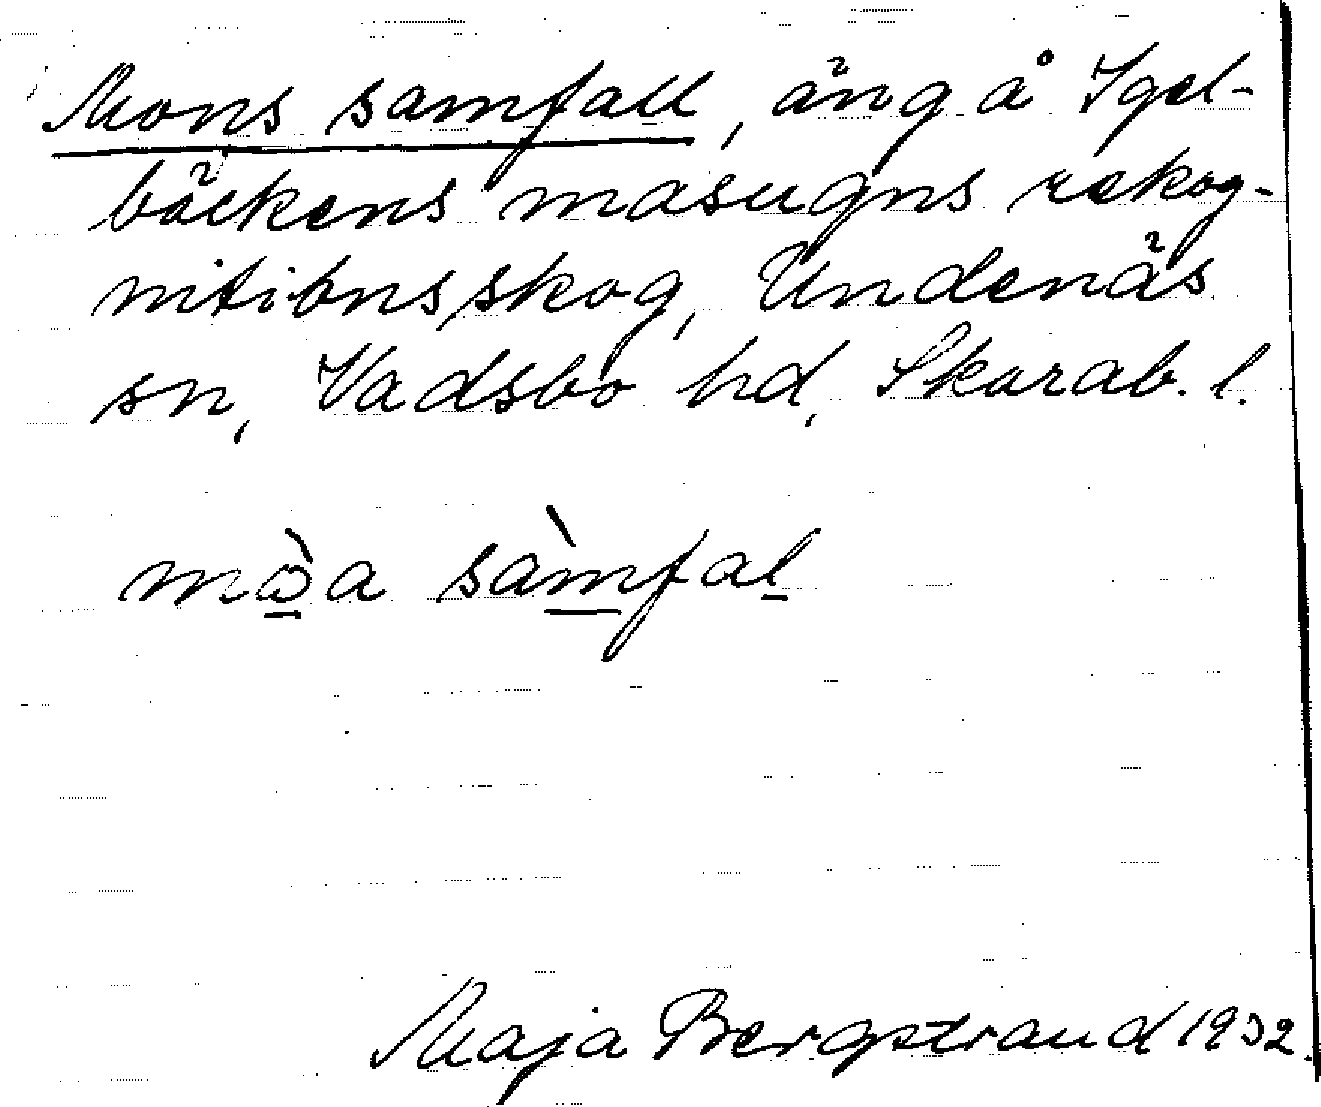 Mons samfall, äng å Igel-
bäckens masugns rekog-
nitionsskog, Undenäs
sn, Vadsbo hd, Skarab. l.
mò̲a sàm̲fal̲
Maja Bergstrand 1932.